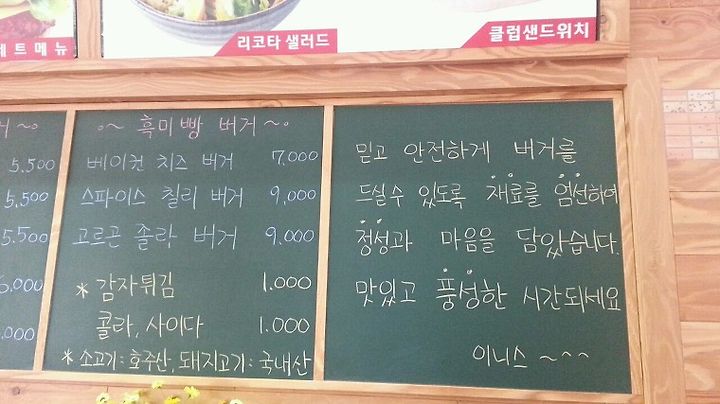 세트메뉴
리코타 샐러드
클럽샌드위치
거 ~o
5,500
5,500
5,500
6,000
,000
o~ 흑미빵 버거 ~o
베이컨 치즈 버거 7,000
스파이스 칠리 버거 9,000
고르곤 졸라 버거 9,000
* 감자튀김 1.000
콜라, 사이다 1.000
* 소고기 : 호주산, 돼지고기 : 국내산
믿고 안전하게 버거를
드실수 있도록 재료를 엄선하여
정성과 마음을 담았습니다.
맛있고 풍성한 시간되세요
이니스 ~~~